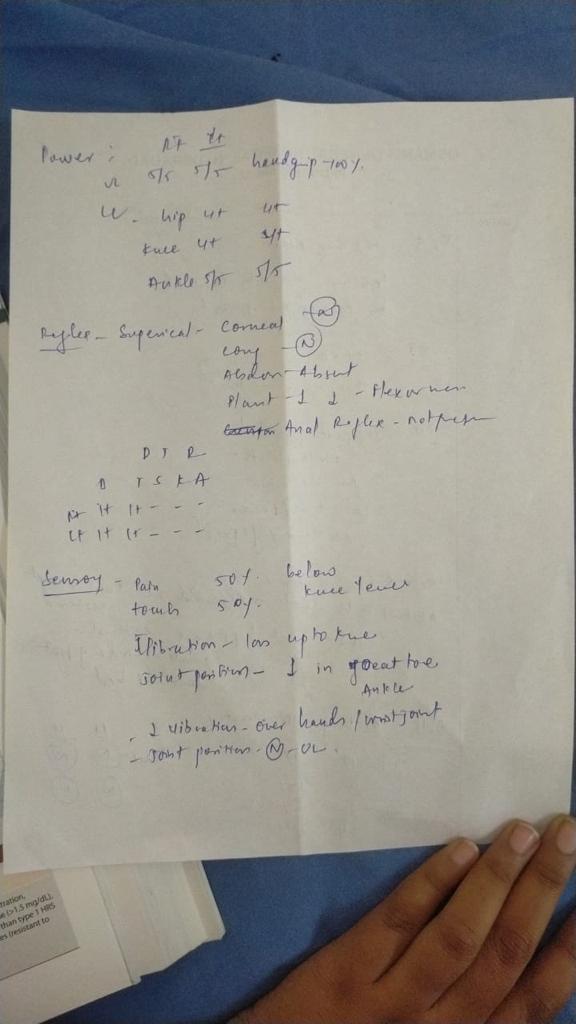 Power : Rt Lt
UL 5/5 5/5 handgrip - 100%
LL - hip 4+ 4+
Knee 4+ 4+
Ankle 5/5 5/5
Reflex - Superical - Corneal - N
Conj - N
Abdom - Absent
Plant - ↓ ↓ - Flexor
Anal Reflex -
D T R
B T S K A
Rt 1+ 1+ - - -
Lt 1+ 1+ - - -
Sensory - Pain 50% below
knee level
touch 50%
Vibration - loss upto knee
Joint position - ↓ in great toe
Ankle
- ↓ vibration - over hands / wrist joint
- Joint position - N - UL.
tration,
e (>1.5 mg/dL).
than type 1 HRS
es (resistant to